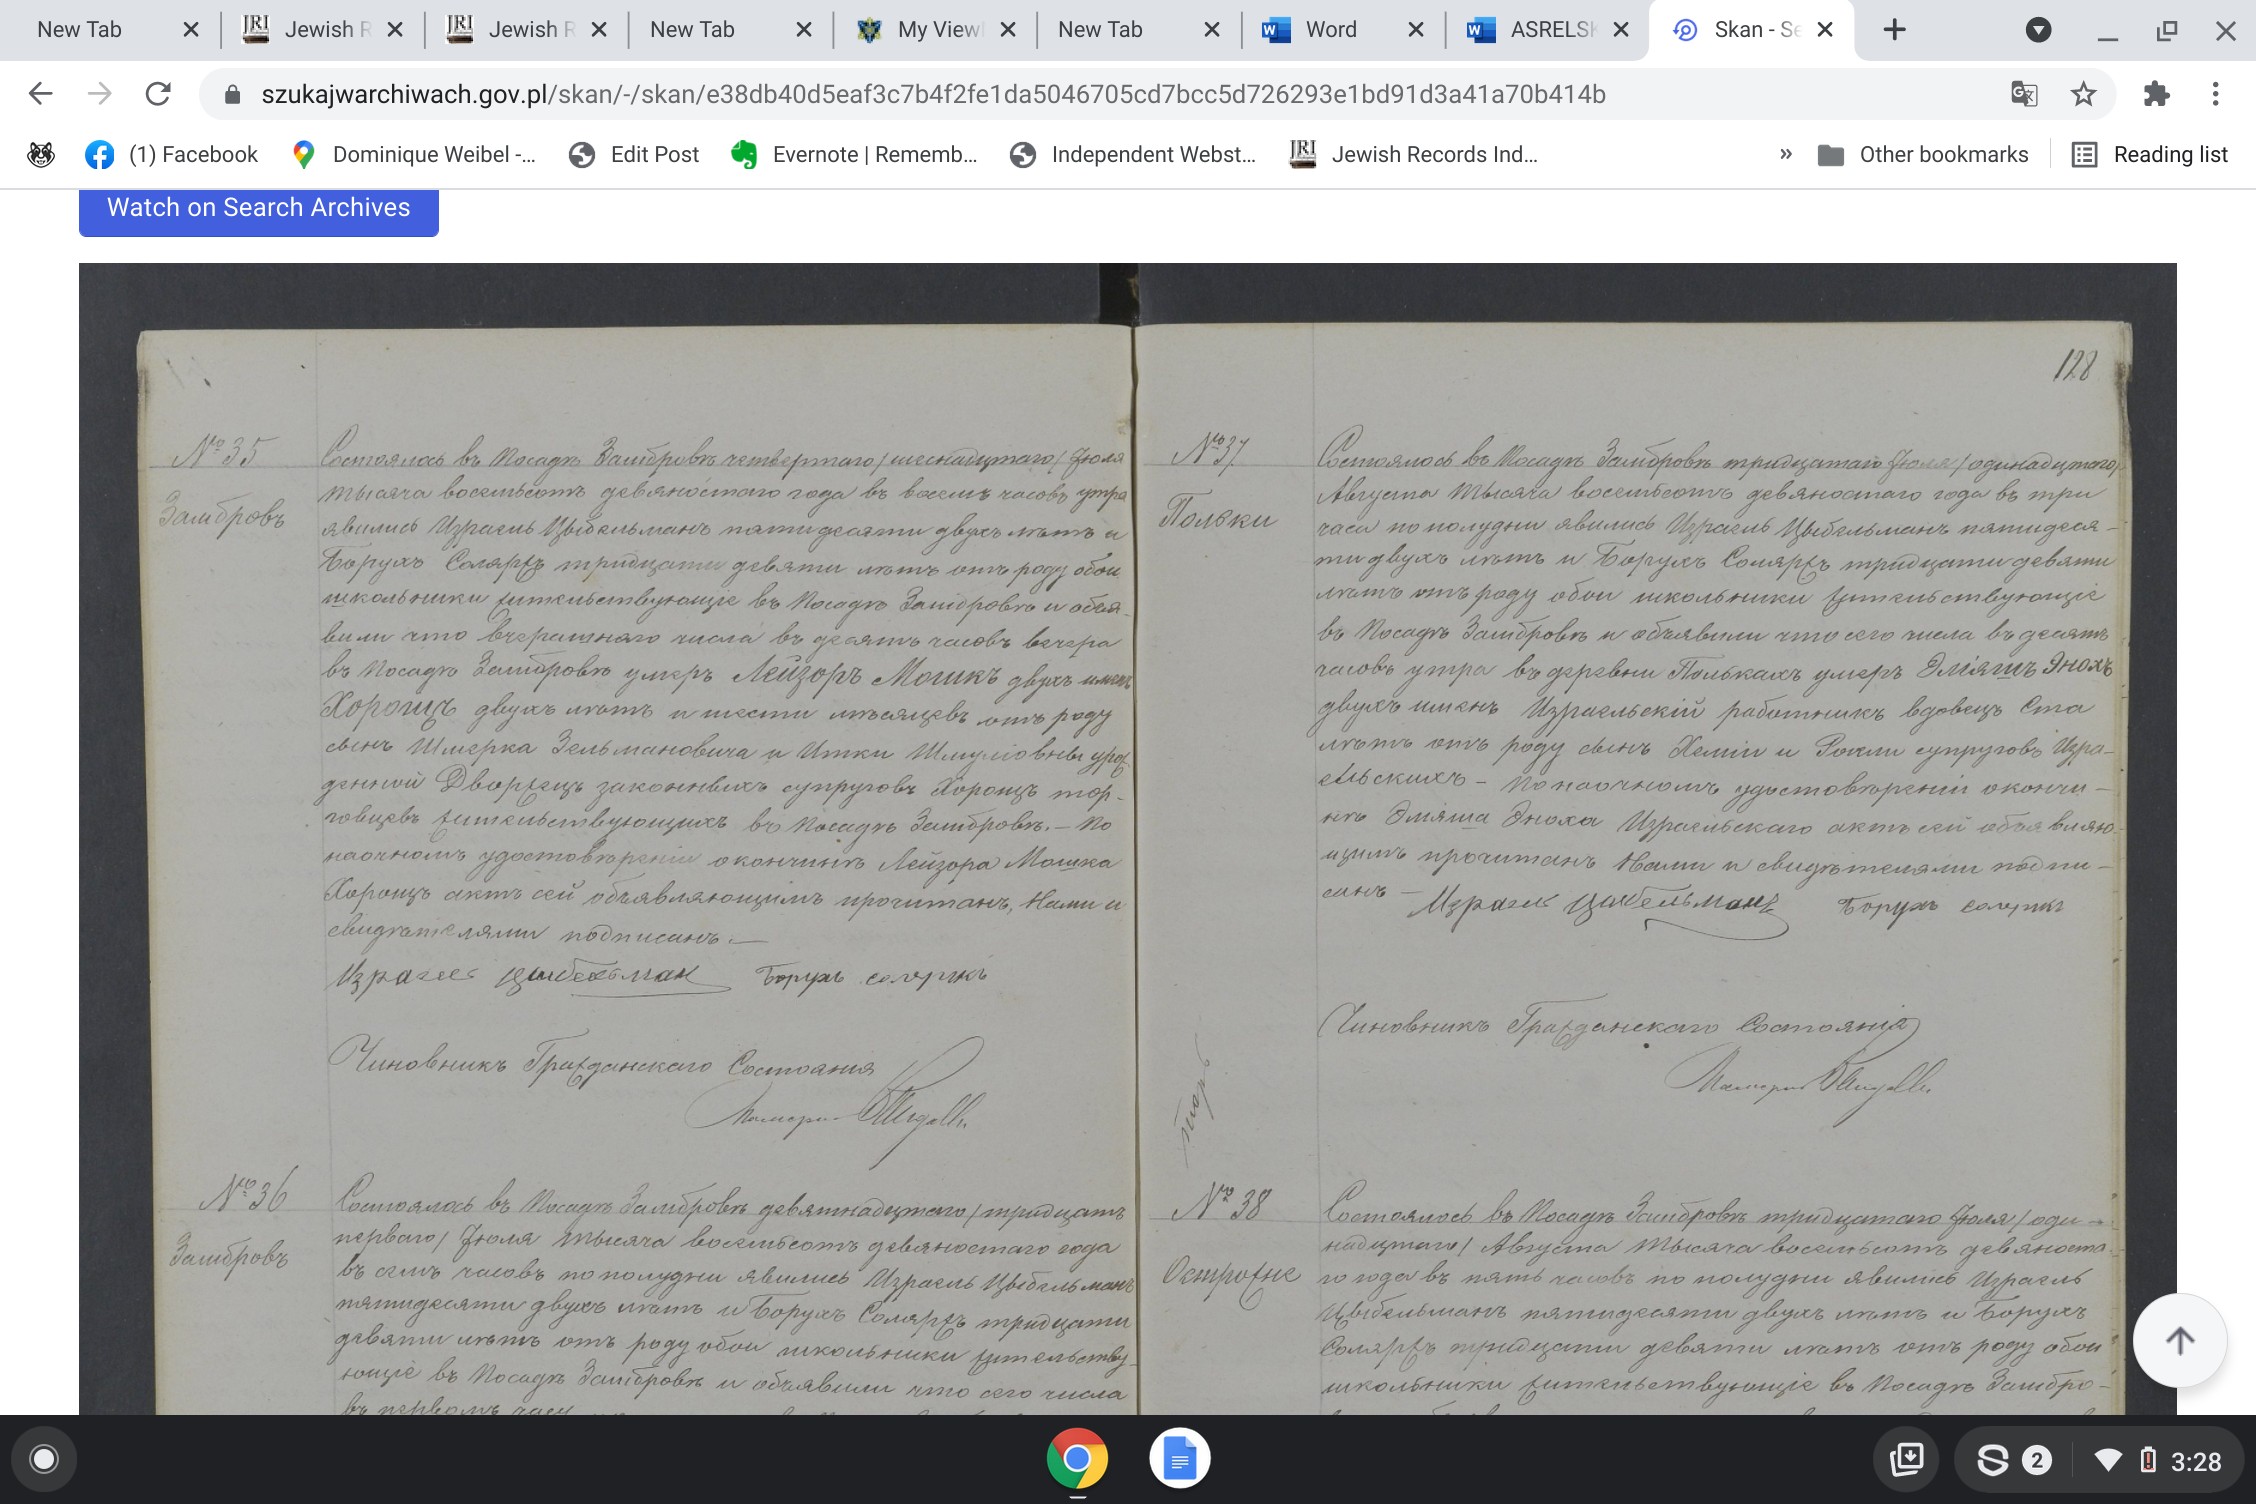 New Tab
Jewish R
Jewish R
New Tab
My View
New Tab
Word
ASRELS
Skan - Se
szukajwarchiwach.gov.pl/skan/-/skan/e38db40d5eaf3c7b4f2fe1da5046705cd7bcc5d726293e1bd91d3a41a70b414b
(1) Facebook
Dominique Weibel -...
Edit Post
Evernote | Rememb...
Independent Webst...
JRI
Jewish Records Ind...
»
Other bookmarks
Reading list
Watch on Search Archives
№ 35
Замбровъ
Состоялось въ Посадѣ Замбровѣ четвертаго /шеснадцатаго/ Іюля
тысяча восемьсотъ девяностаго года въ восемь часовъ утра
явились Израель Цыбельманъ пятидесяти двухъ лѣтъ и
Борухъ Соляржъ тридцати девяти лѣтъ отъ роду обои
школьники жительствующіе въ Посадѣ Замбровѣ и объя-
вили что вчерашняго числа въ десять часовъ вечера
въ Посадѣ Замбровѣ умеръ Лейзоръ Мошкъ двухъ именъ
Хорощъ двухъ лѣтъ и шести мѣсяцевъ отъ роду
сынъ Шмерка Зельмановича и Итки Шмуліовны урож
денной Дворжецъ законныхъ супруговъ Хорощъ тор-
говцевъ жительствующихъ въ Посадѣ Замбровѣ. — По
наочномъ удостовѣреніи о кончинѣ Лейзора Мошка
Хорощъ актъ сей объявляющимъ прочитанъ, Нами и
свидѣтелями подписанъ. —
Израель Цыбельман Борухъ соляржъ
Чиновникъ Гражданскаго Состоянія
№ 36
Замбровъ
Состоялось въ Посадѣ Замбровѣ девятнадцатаго /тридцать
перваго/ Іюля тысяча восемьсотъ девяностаго года
въ семь часовъ по полудни явились Израель Цыбельманъ
пятидесяти двухъ лѣтъ и Борухъ Соляржъ тридцати
девяти лѣтъ отъ роду обои школьники жительству-
ющіе въ Посадѣ Замбровѣ и объявили что сего числа
въ первомъ часу
128
№ 37
Польки
Состоялось въ Посадѣ Замбровѣ тридцатаго Іюля /одинадцатаго/
Августа тысяча восемьсотъ девяностаго года въ три
часа по полудни явились Израель Цыбельманъ пятидеся-
ти двухъ лѣтъ и Борухъ Соляржъ тридцати девяти
лѣтъ отъ роду обои школьники жительствующіе
въ Посадѣ Замбровѣ и объявили что сего числа въ десять
часовъ утра въ деревни Полькахъ умеръ Эліяшъ Энохъ
двухъ именъ Израельскій работникъ вдовецъ ста
лѣтъ отъ роду сынъ Хеміи и Рохли супруговъ Изра-
ельскихъ - По наочномъ удостовѣреніи о кончи-
нѣ Эліяша Эноха Израельскаго актъ сей объявляю-
щимъ прочитанъ Нами и свидѣтелями подпи-
санъ —
Израель Цыбельманъ Борухъ соляржъ
Чиновникъ Гражданскаго Состоянія
№ 38
Остроżне
Состоялось въ Посадѣ Замбровѣ тридцатаго Іюля /оди-
надцатаго/ Августа тысяча восемьсотъ девяноста-
го года въ пять часовъ по полудни явились Израель
Цыбельманъ пятидесяти двухъ лѣтъ и Борухъ
Соляржъ тридцати девяти лѣтъ отъ роду обои
школьники жительствующіе въ Посадѣ Замбро-
2
3:28